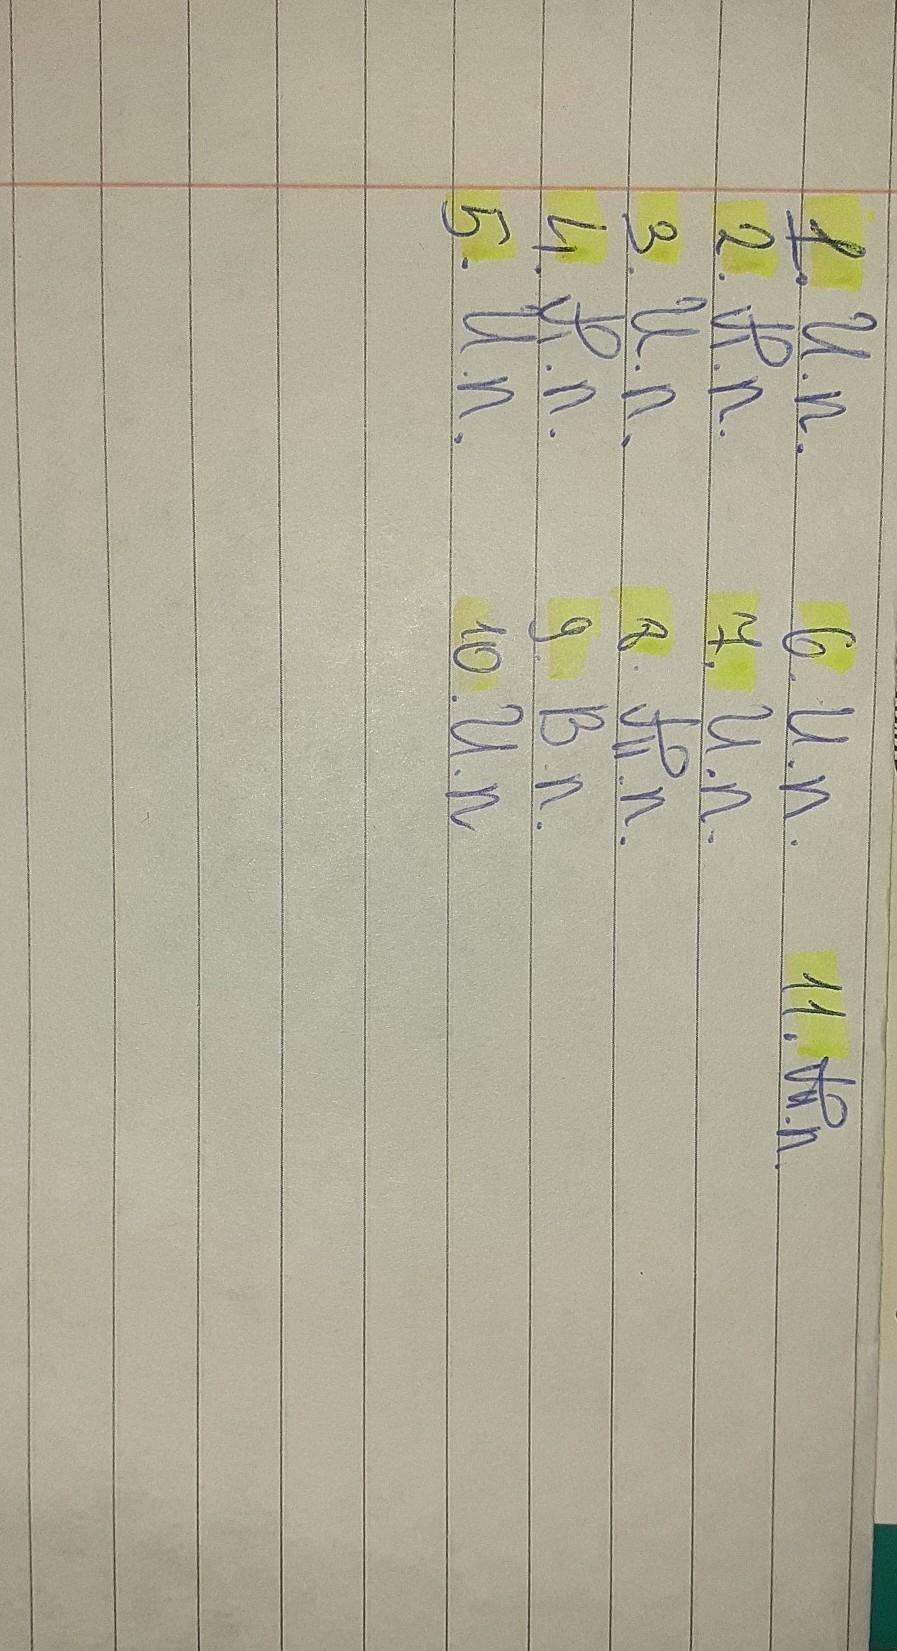 1. И.п. 6. И.п. 11. Р.п.
2. Р.п. 7. И.п.
3. И.п. 8. Р.п.
4. Р.п. 9. В.п.
5. И.п. 10. И.п